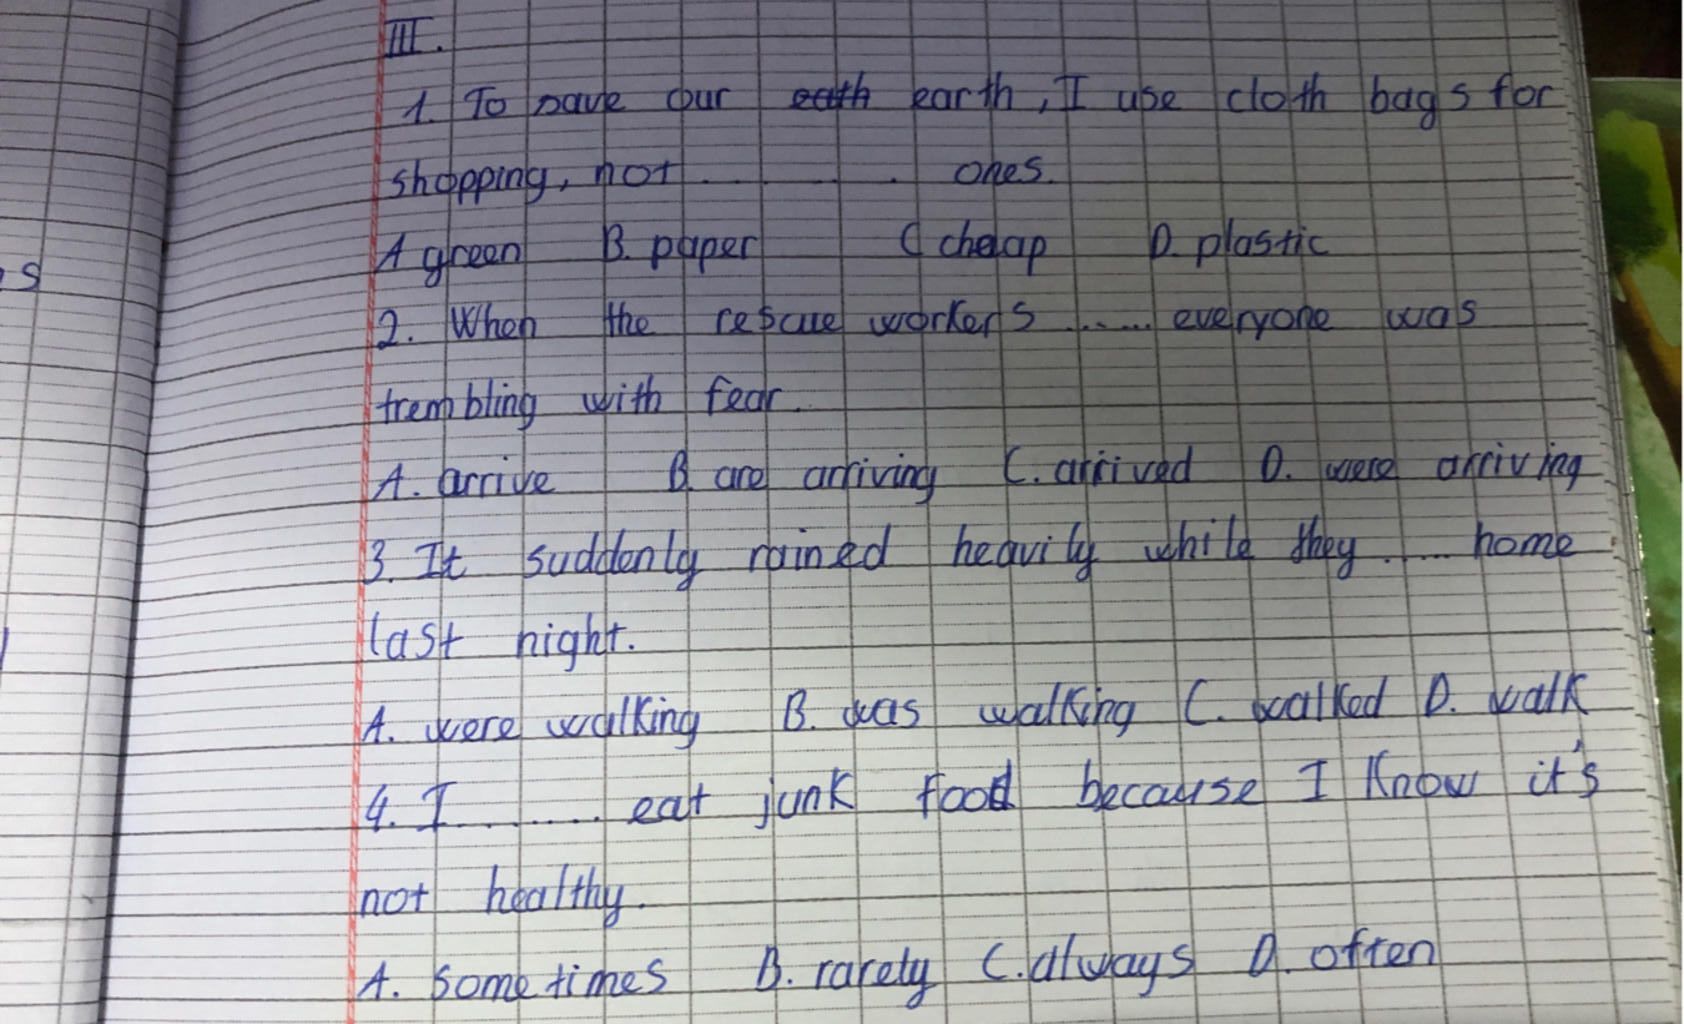 III.
1. To save our eath earth, I use cloth bags for
shopping, not .......... ones.
A green B. paper C cheap D. plastic
2. When the rescue workers ...... everyone was
trembling with fear.
A. arrive B. are arriving C. arrived D. were arriving
3. It suddenly rained heavily while they ...... home
last night.
A. were walking B. was walking C. walked D. walk
4. I ......... eat junk food because I know it's
not healthy.
A. sometimes B. rarely C. always D. often